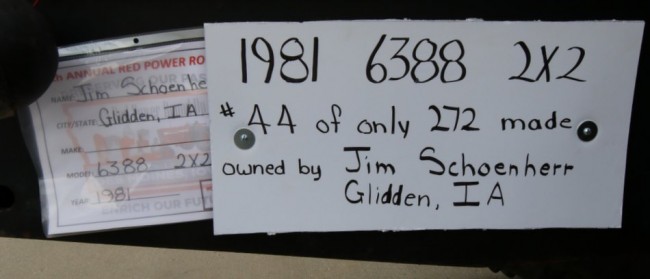 th ANNUAL RED POWER RO
NAME Jim Schoenhe
CITY/STATE Glidden, IA
MAKE
MODEL 6388 2X2
YEAR 1981
ENRICH OUR FUTU
1981 6388 2X2
# 44 of only 272 made
owned by Jim Schoenherr
Glidden, IA